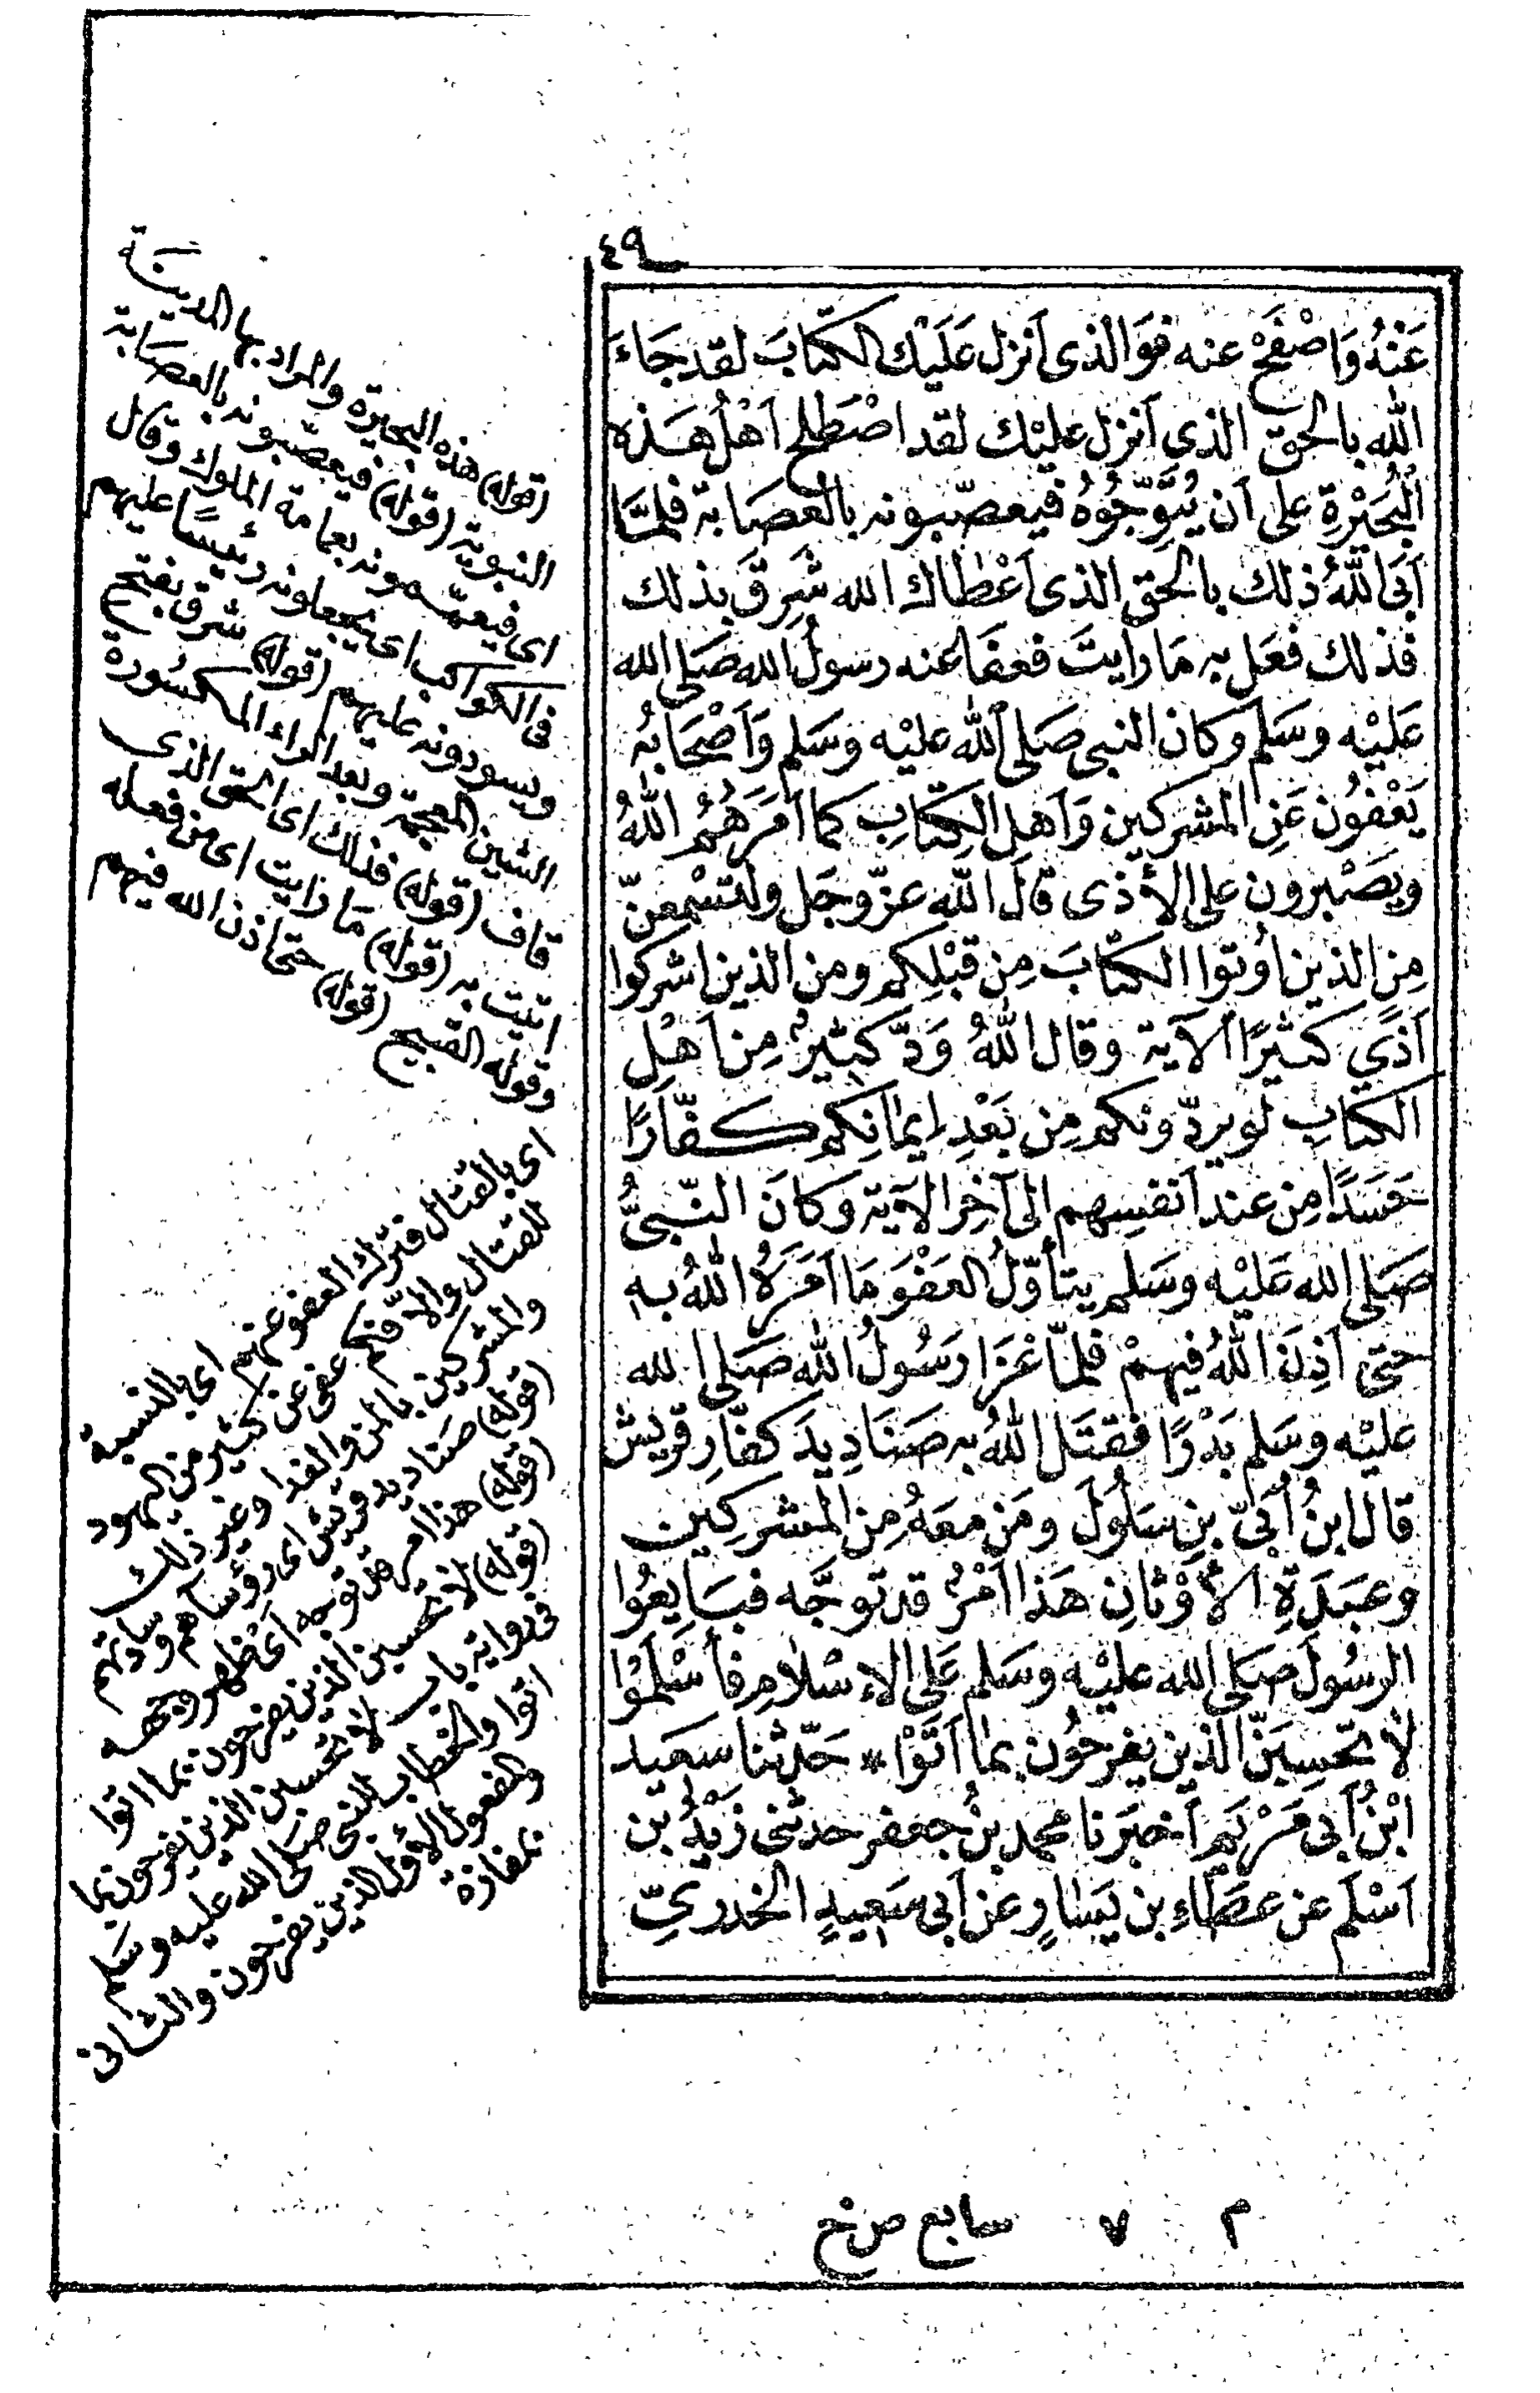 ٤٩
عَنْهُ وَاصْفَحْ عنه فوَالذى أنزل عَلَيْك الكتابَ لقد جَاءَ
الله بالحق الذى أنزل عليْك لقد اصْطَلح أهْلُ هَذه
الْبُحَيْرةِ على أن يُتَوِّجُوُهُ فيعصّبونه بالعصَابة فلمَّا
أبَى اللهُ ذلك بالحَق الذى أعْطاك الله شَرِقَ بذلك
فذلك فعَل به مَا رايتَ فعفَا عنه رسولُ الله صَلى الله
عَليْه وسَلم وكان النبى صَلى الله عليْه وسَلم وَأصْحَابُه
يَعْفُون عَنِ المشركين وَأهلِ الكِتَابِ كما أمَرَهُمُ اللهُ
ويصْبرون على الأذى قالَ الله عزّ وجَل ولتسْمعنّ
مِن الذين أوتوا الكتَابَ مِن قبْلِكم ومن الذين اشركوا
أذًى كثيرًا الآية وقال اللهُ وَدَّ كثيرٌ مِن أهْل
الكتابِ لو يردّونكم مِن بَعْدِ إيمانِكم كفَّارًا
حَسَدًا مِن عند أنفسِهم إلى آخِر الآية وكانَ النّبىُّ
صَلى الله عَليْه وسَلم يتأوّلُ العَفْوَ مَا أمَرَهُ اللهُ به
حتى أذِنَ اللهُ فيهمْ فلمّا غَزَا رَسُولُ الله صَلى الله
عليْه وسَلم بَدْرًا فقتَل اللهُ به صَنَادِيدَ كفّارِ قريش
قال ابنُ أُبَىّ بنِ سَلُولَ ومَن معَهُ مِن المشركِين
وعبَدَةِ الأَوْثانِ هَذا أمْرٌ قد توجَّه فبَايعُوا
الرسُولَ صَلى الله عليْه وسَلم عَلى الإسْلامِ فأسْلمُوْا
لا تحسِبَنّ الذين يفرحُون بما أتَوْا * حَدّثنا سَعيد
ابْنُ أبى مَرْيم أخبَرنا محمد بنُ جعفر حدثنى زَيْدُ بن
أسْلم عن عطَاءِ بن يَسَارٍ عن أبى سَعِيدٍ الخدرىّ
(قوله) هذه البحيرة والمراد بها المدينة
النبوية (قوله) فيعصّبونه بالعصَابة
اى فيعمّمونه بعمامة الملوك وقال
فى الكواكب اى يجعلونه رئيسًا عليهم
ويسودونه عليهم (قوله) شرق بفتح
الشين المعجمة وبعد الراء المكسُورة
قاف (قوله) فذلك اى الحق الذى
اتيت به (قوله) مَا رايت اى من فعله
وقوله القبيح (قوله) حتى اذن الله فيهم
اى بالقتال فترك العفو عنهم اى بالنسبة
للقتال والا فكم عفى عن كثير من اليهود
والمشركين بالمن والفدا وغير ذلك
(قوله) صناديد قريش اى رؤساهم وساداتهم
(قوله) هذا امر قد توجه اى ظهر وجهه
(قوله) لا تحسبن الذين يفرحون بما اتوا
فى رواية باب لا تحسبن الذين يفرحون بما
اتوا والخطاب للنبى صَلى الله عليه وسَلم
والمفعول الأول الذين يفرحون والثانى
بمفازة
م ٧ سابع ص خ